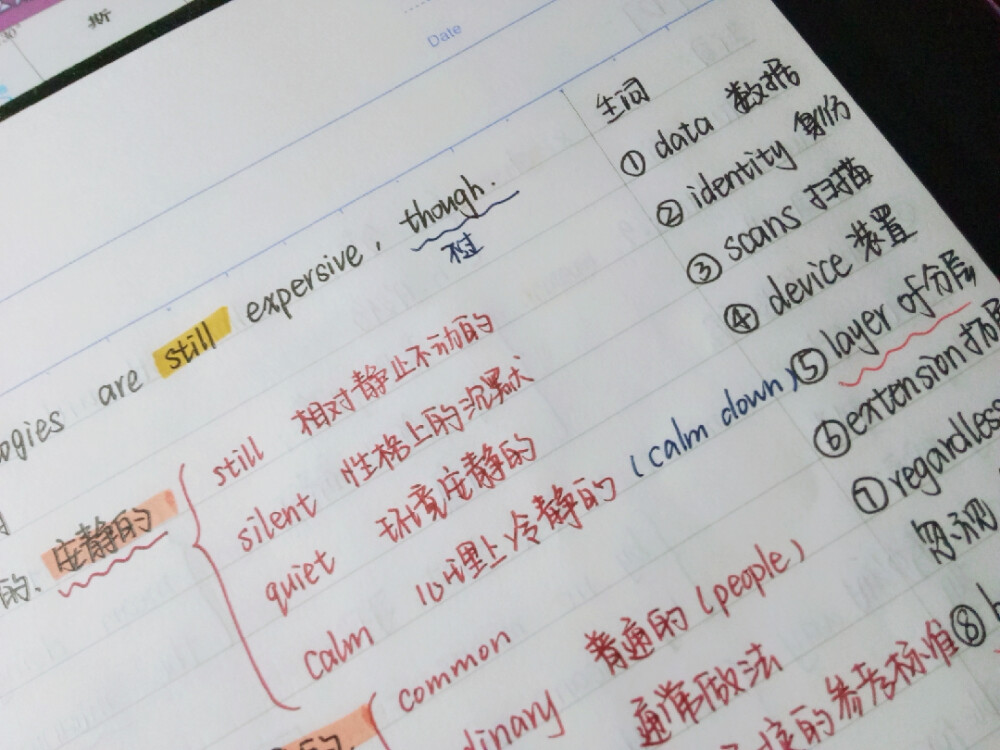 Date
生词
① data 数据
② identity 身份
③ scans 扫描
④ device 装置
⑤ layer of 分层
⑥ extension
⑦ regardless
忽视
⑧
are still expersive, though.
不过
安静的
still 相对静止不动的
silent 性格上的沉默
quiet 环境安静的
calm 心理上冷静的 (calm down)
common 普通的 (people)
dinary 通常做法
的参考标准